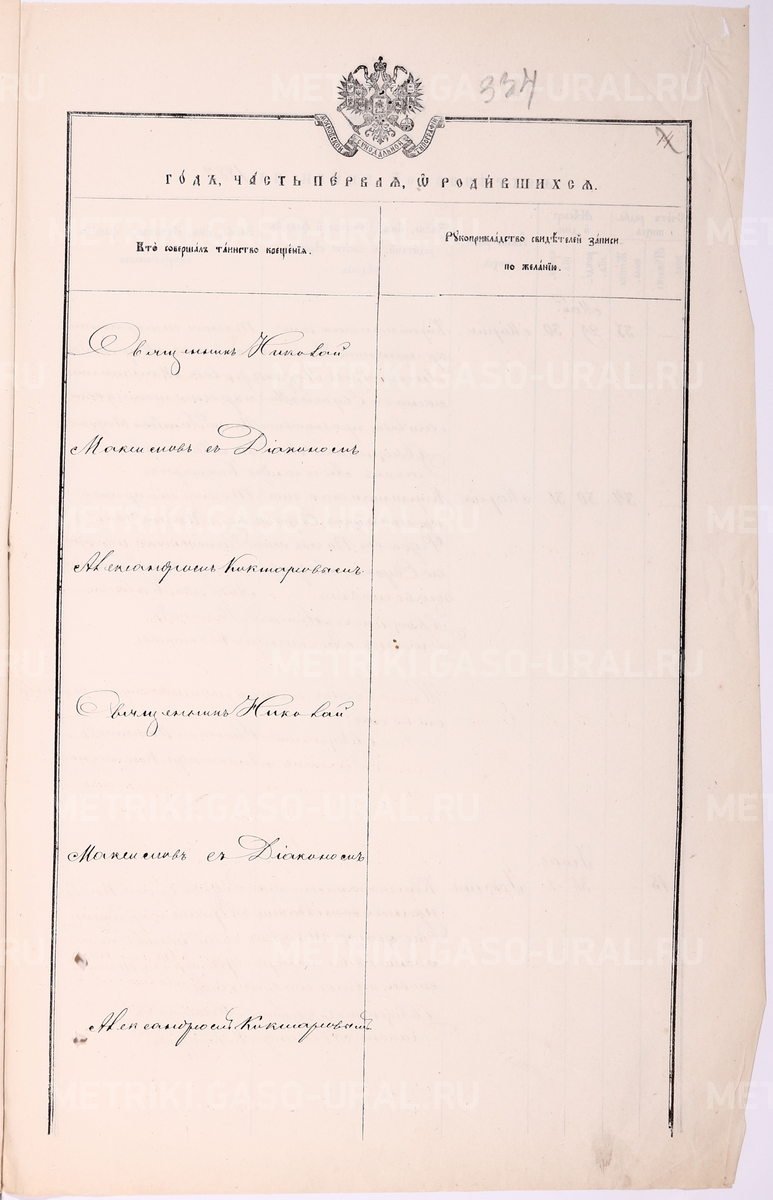 334
МОСКОВСКОЙ СѴНОДАЛЬНОЙ ТИПОГРАФІИ
ГО́ДЪ, ЧА́СТЬ ПЕ́РВАЯ, Ѽ РОДИ́ВШИХСЯ.
Кто̀ соверша́лъ та́инство креще́нїя.
Рꙋкоприкла́дство свидѣ́телей за́писи
по жела́нїю.
Священникъ Николай
Максимовъ съ Діакономъ
Александромъ Кокшаровымъ
Священникъ Николай
Максимовъ съ Діакономъ
Александромъ Кокшаровымъ
METRIKI.GASO-URAL.RU